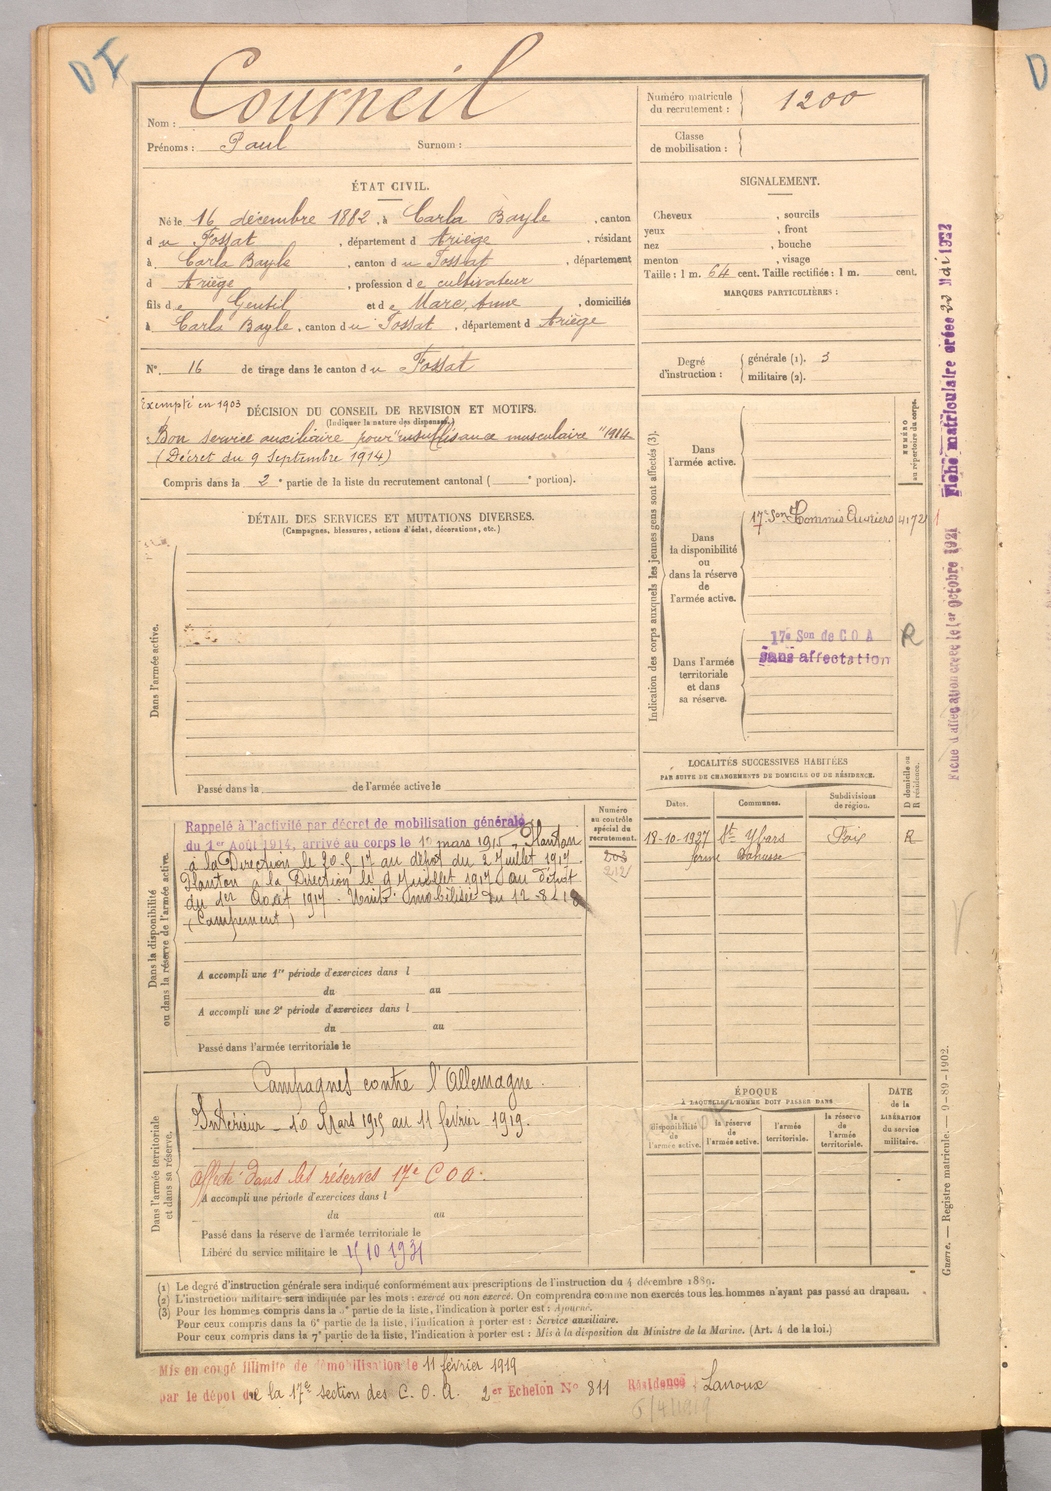 DI
Nom : Courneil
Prénoms : Paul Surnom :
Numéro matricule du recrutement : 1200
Classe de mobilisation :
ÉTAT CIVIL.
Né le 16 décembre 1882, à Carla Bayle, canton
du Fossat, département d Ariège, résidant
à Carla Bayle, canton du Fossat, département
d Ariège, profession de cultivateur
fils de Gentil et de Marc, Anne, domiciliés
à Carla Bayle, canton du Fossat, département d Ariège
N° 16 de tirage dans le canton du Fossat
SIGNALEMENT.
Cheveux , sourcils
yeux , front
nez , bouche
menton , visage
Taille : 1 m. 64 cent. Taille rectifiée : 1 m. cent.
MARQUES PARTICULIÈRES :
Degré d'instruction : générale (1). 3
militaire (2).
Exempté en 1903
DÉCISION DU CONSEIL DE REVISION ET MOTIFS.
(Indiquer la nature des dispenses.)
Bon service auxiliaire pour "insuffisance musculaire" 1914
(Décret du 9 Septembre 1914)
Compris dans la 2e partie de la liste du recrutement cantonal ( e portion).
DÉTAIL DES SERVICES ET MUTATIONS DIVERSES.
(Campagnes, blessures, actions d'éclat, décorations, etc.)
Dans l'armée active.
Passé dans la de l'armée active le
Indication des corps auxquels les jeunes gens sont affectés (3).
NUMÉRO au répertoire du corps.
Dans l'armée active.
Dans la disponibilité ou dans la réserve de l'armée active.
17e Son Commis Ouvriers 4172
Dans l'armée territoriale et dans sa réserve.
17e Son de C O A
Sans affectation
R
LOCALITÉS SUCCESSIVES HABITÉES
PAR SUITE DE CHANGEMENTS DE DOMICILE OU DE RÉSIDENCE.
D domicile ou R résidence.
Dates. Communes. Subdivisions de région.
18-10-1927 St Ybars Foix R
ferme
Dans la disponibilité ou dans la réserve de l'armée active.
Numéro au contrôle spécial du recrutement.
203
Rappelé à l'activité par décret de mobilisation générale
du 1er Août 1914, arrivé au corps le 10 mars 1915, Planton
à la Direction le 20-5-17 au dépôt du 2 Juillet 1917.
Planton à la Direction le 9 Juillet 1917 au dépôt
du 1er Août 1917. Unité mobilisée du 12-8-18
(Campement)
A accompli une 1re période d'exercices dans l
du au
A accompli une 2e période d'exercices dans l
du au
Passé dans l'armée territoriale le
Dans l'armée territoriale et dans sa réserve.
Campagnes contre l'Allemagne.
Intérieur - 10 Mars 1915 au 11 février 1919.
Affecté dans les réserves 17e C O A.
A accompli une période d'exercices dans l
du au
Passé dans la réserve de l'armée territoriale le
Libéré du service militaire le 15 10 1931
ÉPOQUE
À LAQUELLE L'HOMME DOIT PASSER DANS
la disponibilité de l'armée active.
la réserve de l'armée active.
l'armée territoriale.
la réserve de l'armée territoriale.
DATE de la LIBÉRATION du service militaire.
(1) Le degré d'instruction générale sera indiqué conformément aux prescriptions de l'instruction du 4 décembre 1889.
(2) L'instruction militaire sera indiquée par les mots : exercé ou non exercé. On comprendra comme non exercés tous les hommes n'ayant pas passé au drapeau.
(3) Pour les hommes compris dans la 5e partie de la liste, l'indication à porter est : Ajourné.
Pour ceux compris dans la 6e partie de la liste, l'indication à porter est : Service auxiliaire.
Pour ceux compris dans la 7e partie de la liste, l'indication à porter est : Mis à la disposition du Ministre de la Marine. (Art. 4 de la loi.)
Mis en congé illimité de démobilisation le 11 février 1919
par le dépôt de la 17e section des C. O. A. 2er Echelon N° 811 Résidence Lanoux
Fiche d'affectation créée le 1er octobre 1921
Fiche matriculaire créée 23 Mai 1923
Guerre. — Registre matricule. — 9-89-1902.